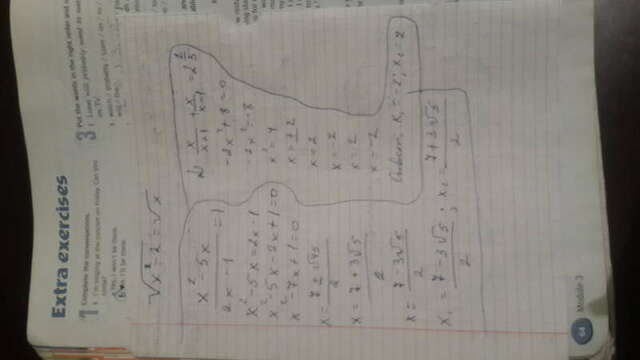 Extra exercises
1 Complete the conversations.
1 I'm singing at the concert on Friday. Can you come?
a Yes, I won't be there.
b I'll be there.
3 Put the words in the right order and
on TV.
√(x²-2) = √x
(x²-5x)/(2x-1) = 1
x²-5x=2x-1
x²-5x-2x+1=0
x²-7x+1=0
x=(7±√45)/2
x=(7+3√5)/2
x=(7-3√5)/2
x₁=(7-3√5)/2; x₂=(7+3√5)/2
x/(x+1) + x/(x-1) = 2 2/3
-2x²+8=0
-2x²=-8
x²=4
x=±2
x=2
x=-2
x=2
x=-2
x₁=-2; x₂=2
64 Module 3